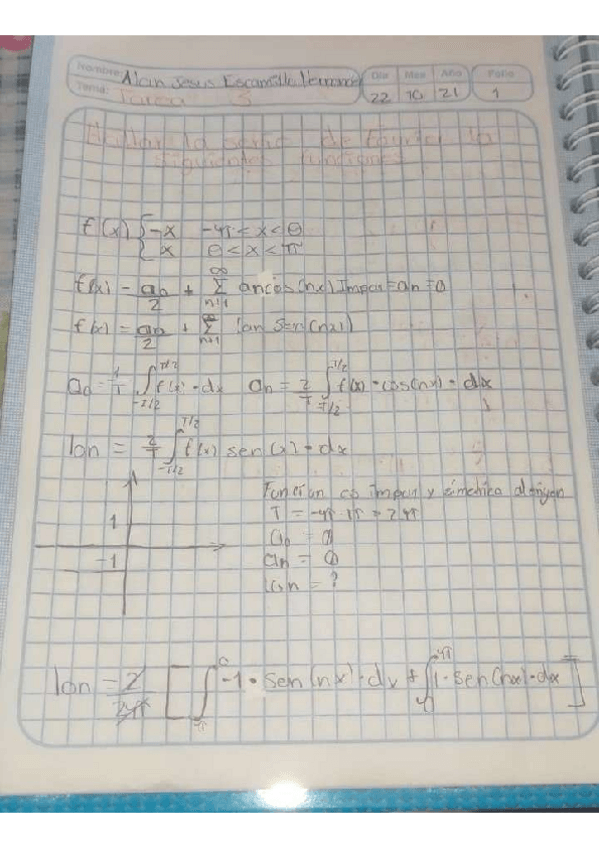 Nombre: Alan Jesus Escamilla Hernandez Dia Mes Año Folio
Tema: Tarea 5 22 10 21 1
Hallar la serie de Fourier la
siguientes funciones
f(x) { -x -π < x < 0
x 0 < x < π
f(x) = a0/2 + ∞ Σ n=1 an cos(nx) Impar = an = 0
f(x) = a0/2 + ∞ Σ n=1 bn Sen(nx)
a0 = 1/T ∫ T/2 -T/2 f(x) · dx an = 2/T ∫ T/2 -T/2 f(x) · cos(nx) · dx
bn = 2/T ∫ T/2 -T/2 f(x) sen(x) · dx
Función es impar y simetrica al origen
1 T = -π π = 2π
a0 = 0
-1 an = 0
bn = ?
bn = 2/2π [ ∫ 0 -π -1 · Sen(nx) · dx + ∫ π 1 · Sen(nx) · dx ]